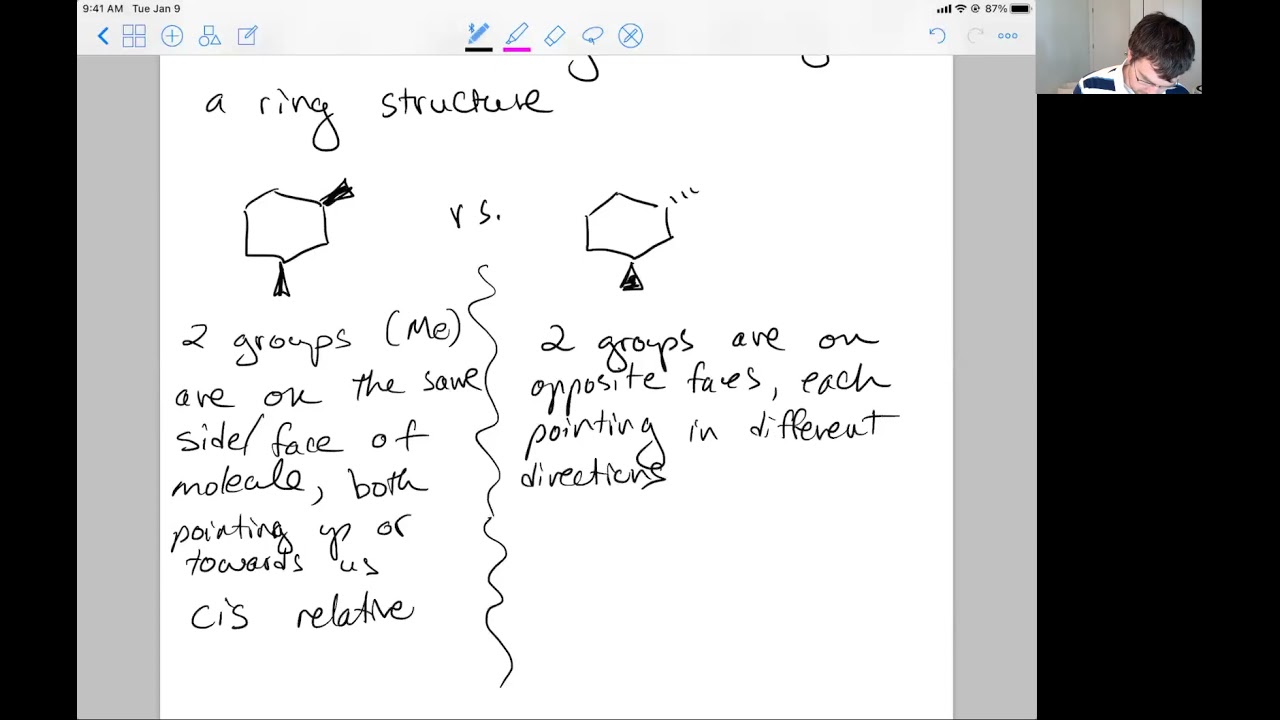 9:41 AM Tue Jan 9
87%
a ring structure
vs.
2 groups (Me)
are on the same
side/face of
molecule, both
pointing up or
towards us
cis relative
2 groups are on
opposite faces, each
pointing in different
directions